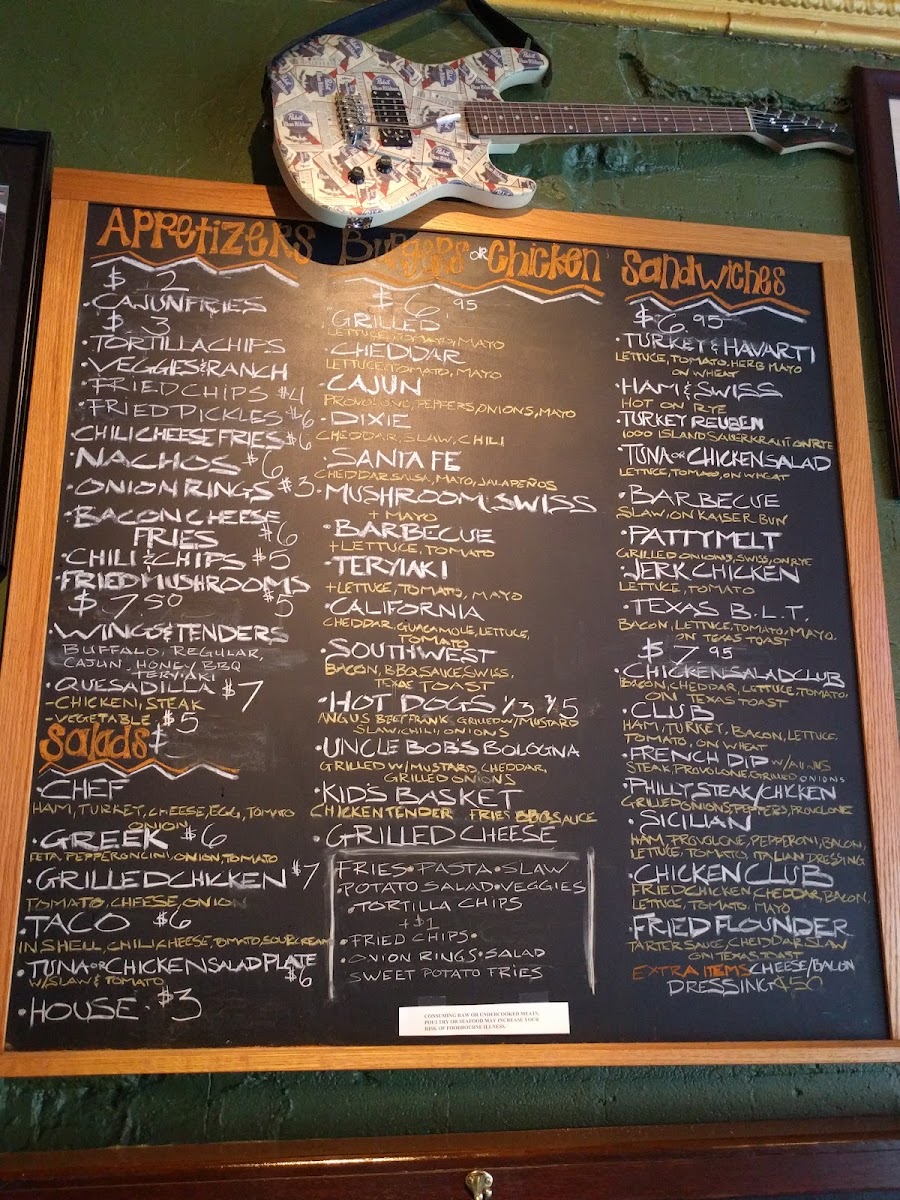 Pabst Blue Ribbon
Appetizers
$ 2
• CAJUN FRIES
$ 3
• TORTILLA CHIPS
• VEGGIES & RANCH
• FRIED CHIPS $4
• FRIED PICKLES $6
• CHILI CHEESE FRIES $6
• NACHOS $6
• ONION RINGS $3
• BACON CHEESE
FRIES $6
• CHILI & CHIPS $5
• FRIED MUSHROOMS
$5
$ 7 50
• WINGS & TENDERS
BUFFALO, REGULAR,
CAJUN, HONEY BBQ
TERYAKI
• QUESADILLA $7
- CHICKEN, STEAK
- VEGETABLE $5
Salads $
• CHEF
HAM, TURKEY, CHEESE, EGG, TOMATO
ONION
• GREEK $6
FETA, PEPPERONCINI, ONION, TOMATO
• GRILLED CHICKEN $7
TOMATO, CHEESE, ONION
• TACO $6
IN SHELL, CHILI, CHEESE, TOMATO, SOUR CREAM
• TUNA OR CHICKEN SALAD PLATE
W/ SLAW & TOMATO $6
• HOUSE $3
Burgers OR Chicken
$ 6.95
• GRILLED
LETTUCE, TOMATO, MAYO
• CHEDDAR
LETTUCE, TOMATO, MAYO
• CAJUN
PROVOLONE, PEPPERS, ONIONS, MAYO
• DIXIE
CHEDDAR, SLAW, CHILI
• SANTA FE
CHEDDAR, SALSA, MAYO, JALAPEÑOS
• MUSHROOM & SWISS
+ MAYO
• BARBECUE
+ LETTUCE, TOMATO
• TERYIAKI
+ LETTUCE, TOMATO, MAYO
• CALIFORNIA
CHEDDAR, GUACAMOLE, LETTUCE,
TOMATO
• SOUTHWEST
BACON, BBQ SAUCE, SWISS,
TEXAS TOAST
• HOT DOGS 1/3 2/5
ANGUS BEEF FRANK, GRILLED W/ MUSTARD
SLAW, CHILI, ONIONS
• UNCLE BOB'S BOLOGNA
GRILLED W/ MUSTARD, CHEDDAR,
GRILLED ONIONS
• KID'S BASKET
CHICKEN TENDER FRIES BBQ SAUCE
• GRILLED CHEESE
FRIES • PASTA • SLAW
• POTATO SALAD • VEGGIES
• TORTILLA CHIPS
+ $1
• FRIED CHIPS •
• ONION RINGS • SALAD
SWEET POTATO FRIES
CONSUMING RAW OR UNDERCOOKED MEATS,
POULTRY OR SEAFOOD MAY INCREASE YOUR
RISK OF FOODBORNE ILLNESS.
Sandwiches
$ 6.95
• TURKEY & HAVARTI
LETTUCE, TOMATO, HERB MAYO
ON WHEAT
• HAM & SWISS
HOT ON RYE
• TURKEY REUBEN
1000 ISLAND SAUERKRAUT ON RYE
• TUNA OR CHICKEN SALAD
LETTUCE, TOMATO, ON WHEAT
• BARBECUE
SLAW, ON KAISER BUN
• PATTY MELT
GRILLED ONIONS, SWISS, ON RYE
• JERK CHICKEN
LETTUCE, TOMATO
• TEXAS B.L.T.
BACON, LETTUCE, TOMATO, MAYO,
ON TEXAS TOAST
$ 7.95
• CHICKEN SALAD CLUB
BACON, CHEDDAR, LETTUCE, TOMATO,
ON TEXAS TOAST
• CLUB
HAM, TURKEY, BACON, LETTUCE
TOMATO, ON WHEAT
• FRENCH DIP W/ AU JUS
STEAK, PROVOLONE, GRILLED ONIONS
• PHILLY STEAK/CHICKEN
GRILLED ONIONS, PEPPERS, PROVOLONE
• SICILIAN
HAM, PROVOLONE, PEPPERONI, BACON,
LETTUCE, TOMATO, ITALIAN DRESSING
• CHICKEN CLUB
FRIED CHICKEN, CHEDDAR, BACON,
LETTUCE, TOMATO, MAYO
• FRIED FLOUNDER
TARTER SAUCE, CHEDDAR, SLAW
ON TEXAS TOAST
EXTRA ITEMS CHEESE/BACON
DRESSING